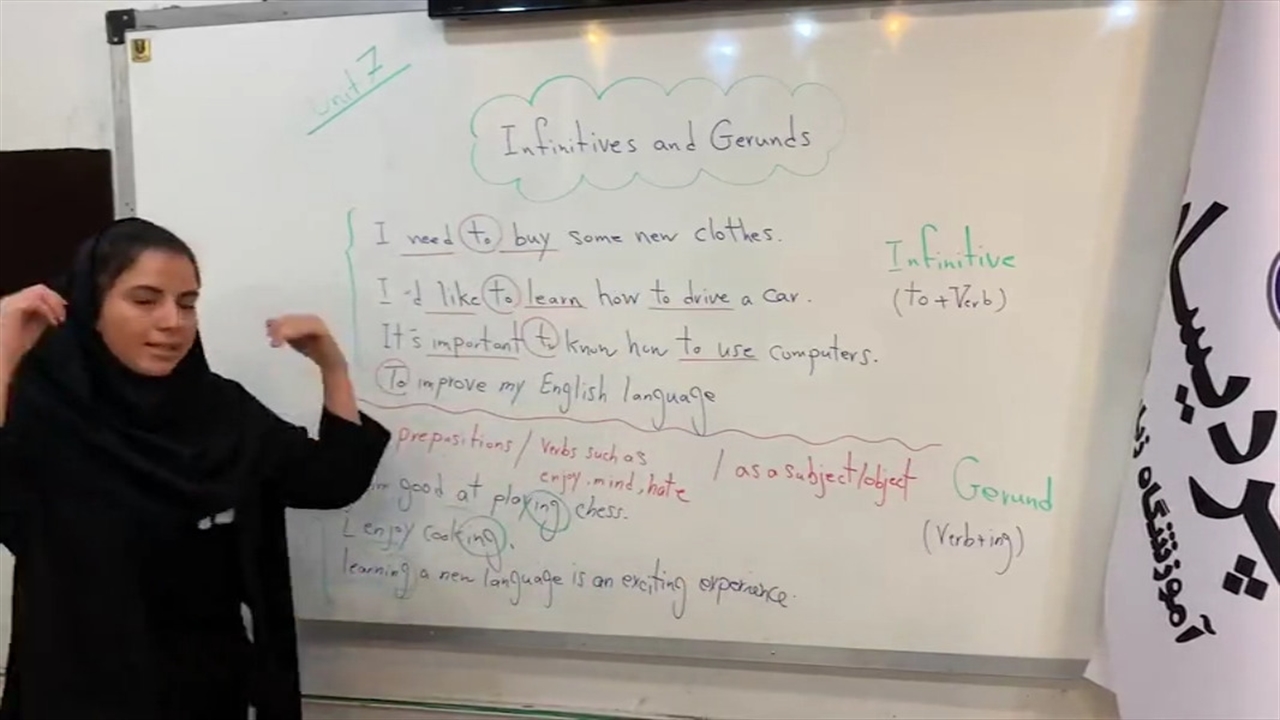 Unit 7
Infinitives and Gerunds
I need to buy some new clothes.
I'd like to learn how to drive a car.
It's important to know how to use computers.
To improve my English language
Infinitive
(to + Verb)
prepositions / verbs such as enjoy, mind, hate / as a subject/object
good at playing chess.
I enjoy cooking.
learning a new language is an exciting experience.
Gerund
(Verb+ing)
پردیسا
آموزشگاه زبا